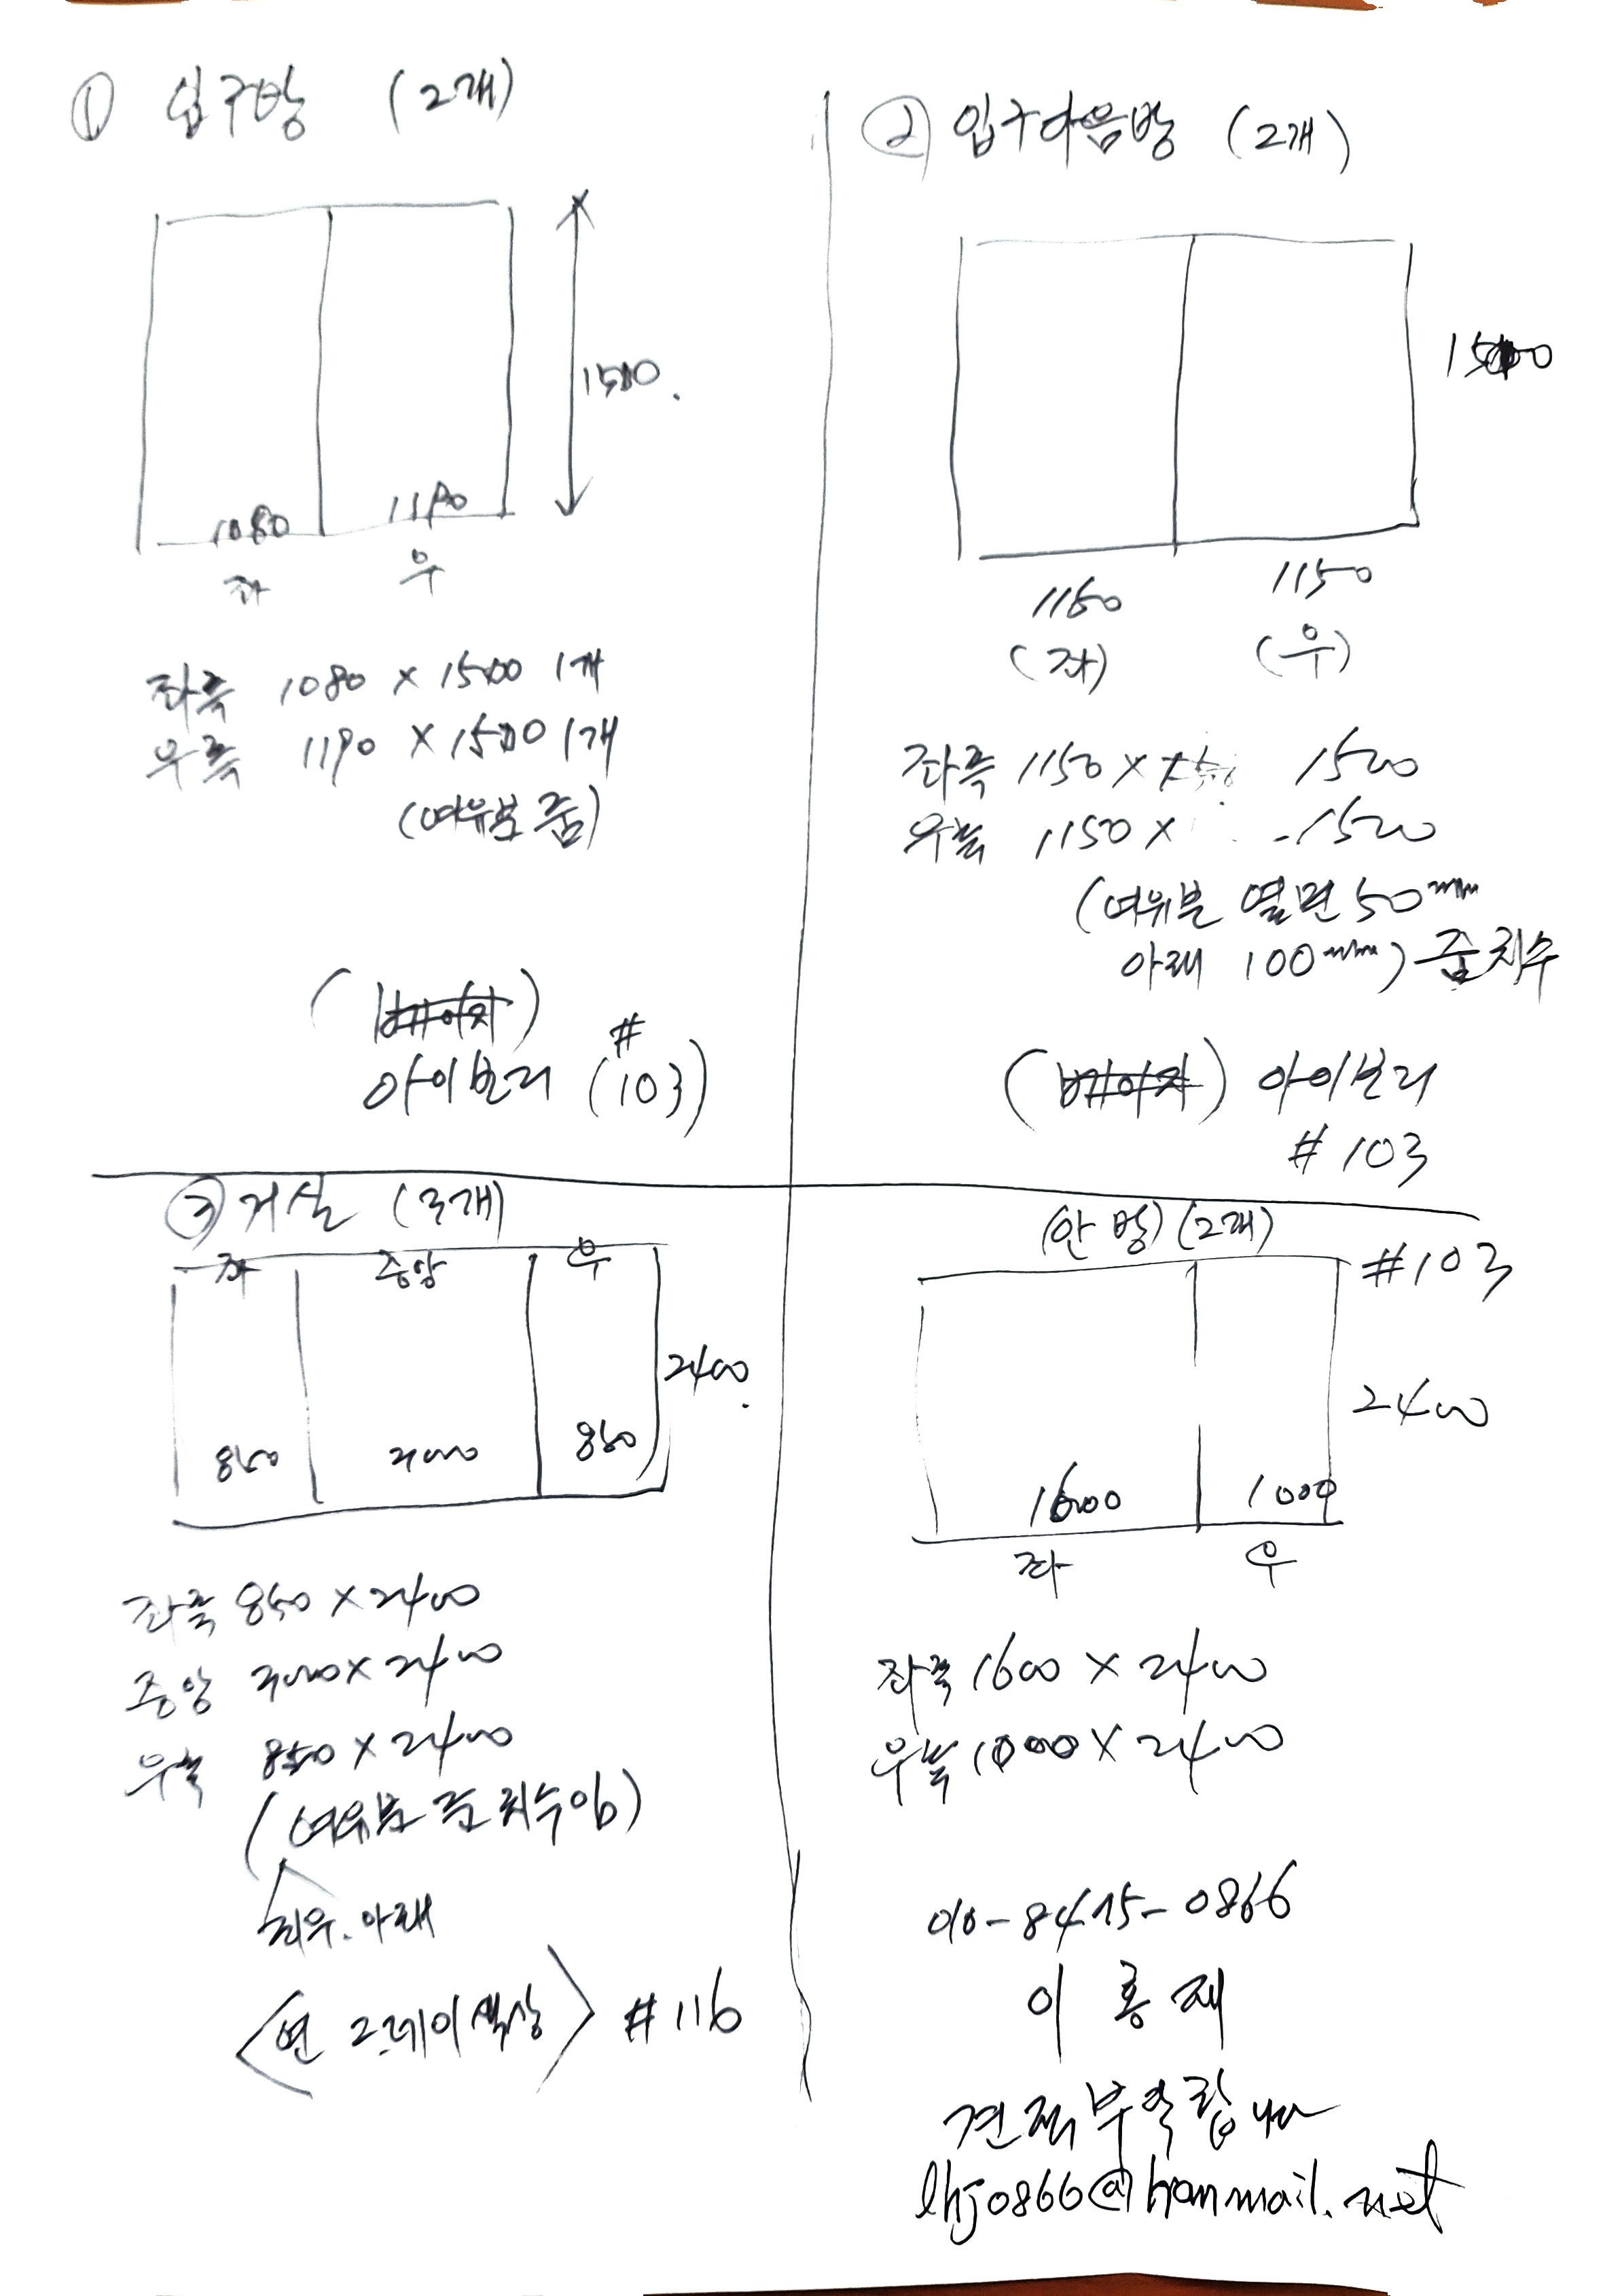 ① 입구방 (2개)
1500.
1080 1190
좌 우
좌측 1080 × 1500 1개
우측 1190 × 1500 1개
(여유분 줌)
(베이지)
아이보리 (#103)
② 입구다음방 (2개)
1500
1150 1150
(좌) (우)
좌측 1150 × 1500
우측 1150 × 1500
(여유분 옆면 50mm
아래 100mm) 줌 치수
(베이지) 아이보리
#103
③ 거실 (3개)
좌 중앙 우
2400.
850 850
좌측 850 × 2400
중앙 × 2400
우측 850 × 2400
(여유분 준 치수임)
좌우. 아래
<연 그레이 색상> #116
(안방) (2개)
#103
2400
1600 1000
좌 우
좌측 1600 × 2400
우측 1000 × 2400
010-8415-0866
이홍재
견적부탁합니다
lhj0866@hanmail.net